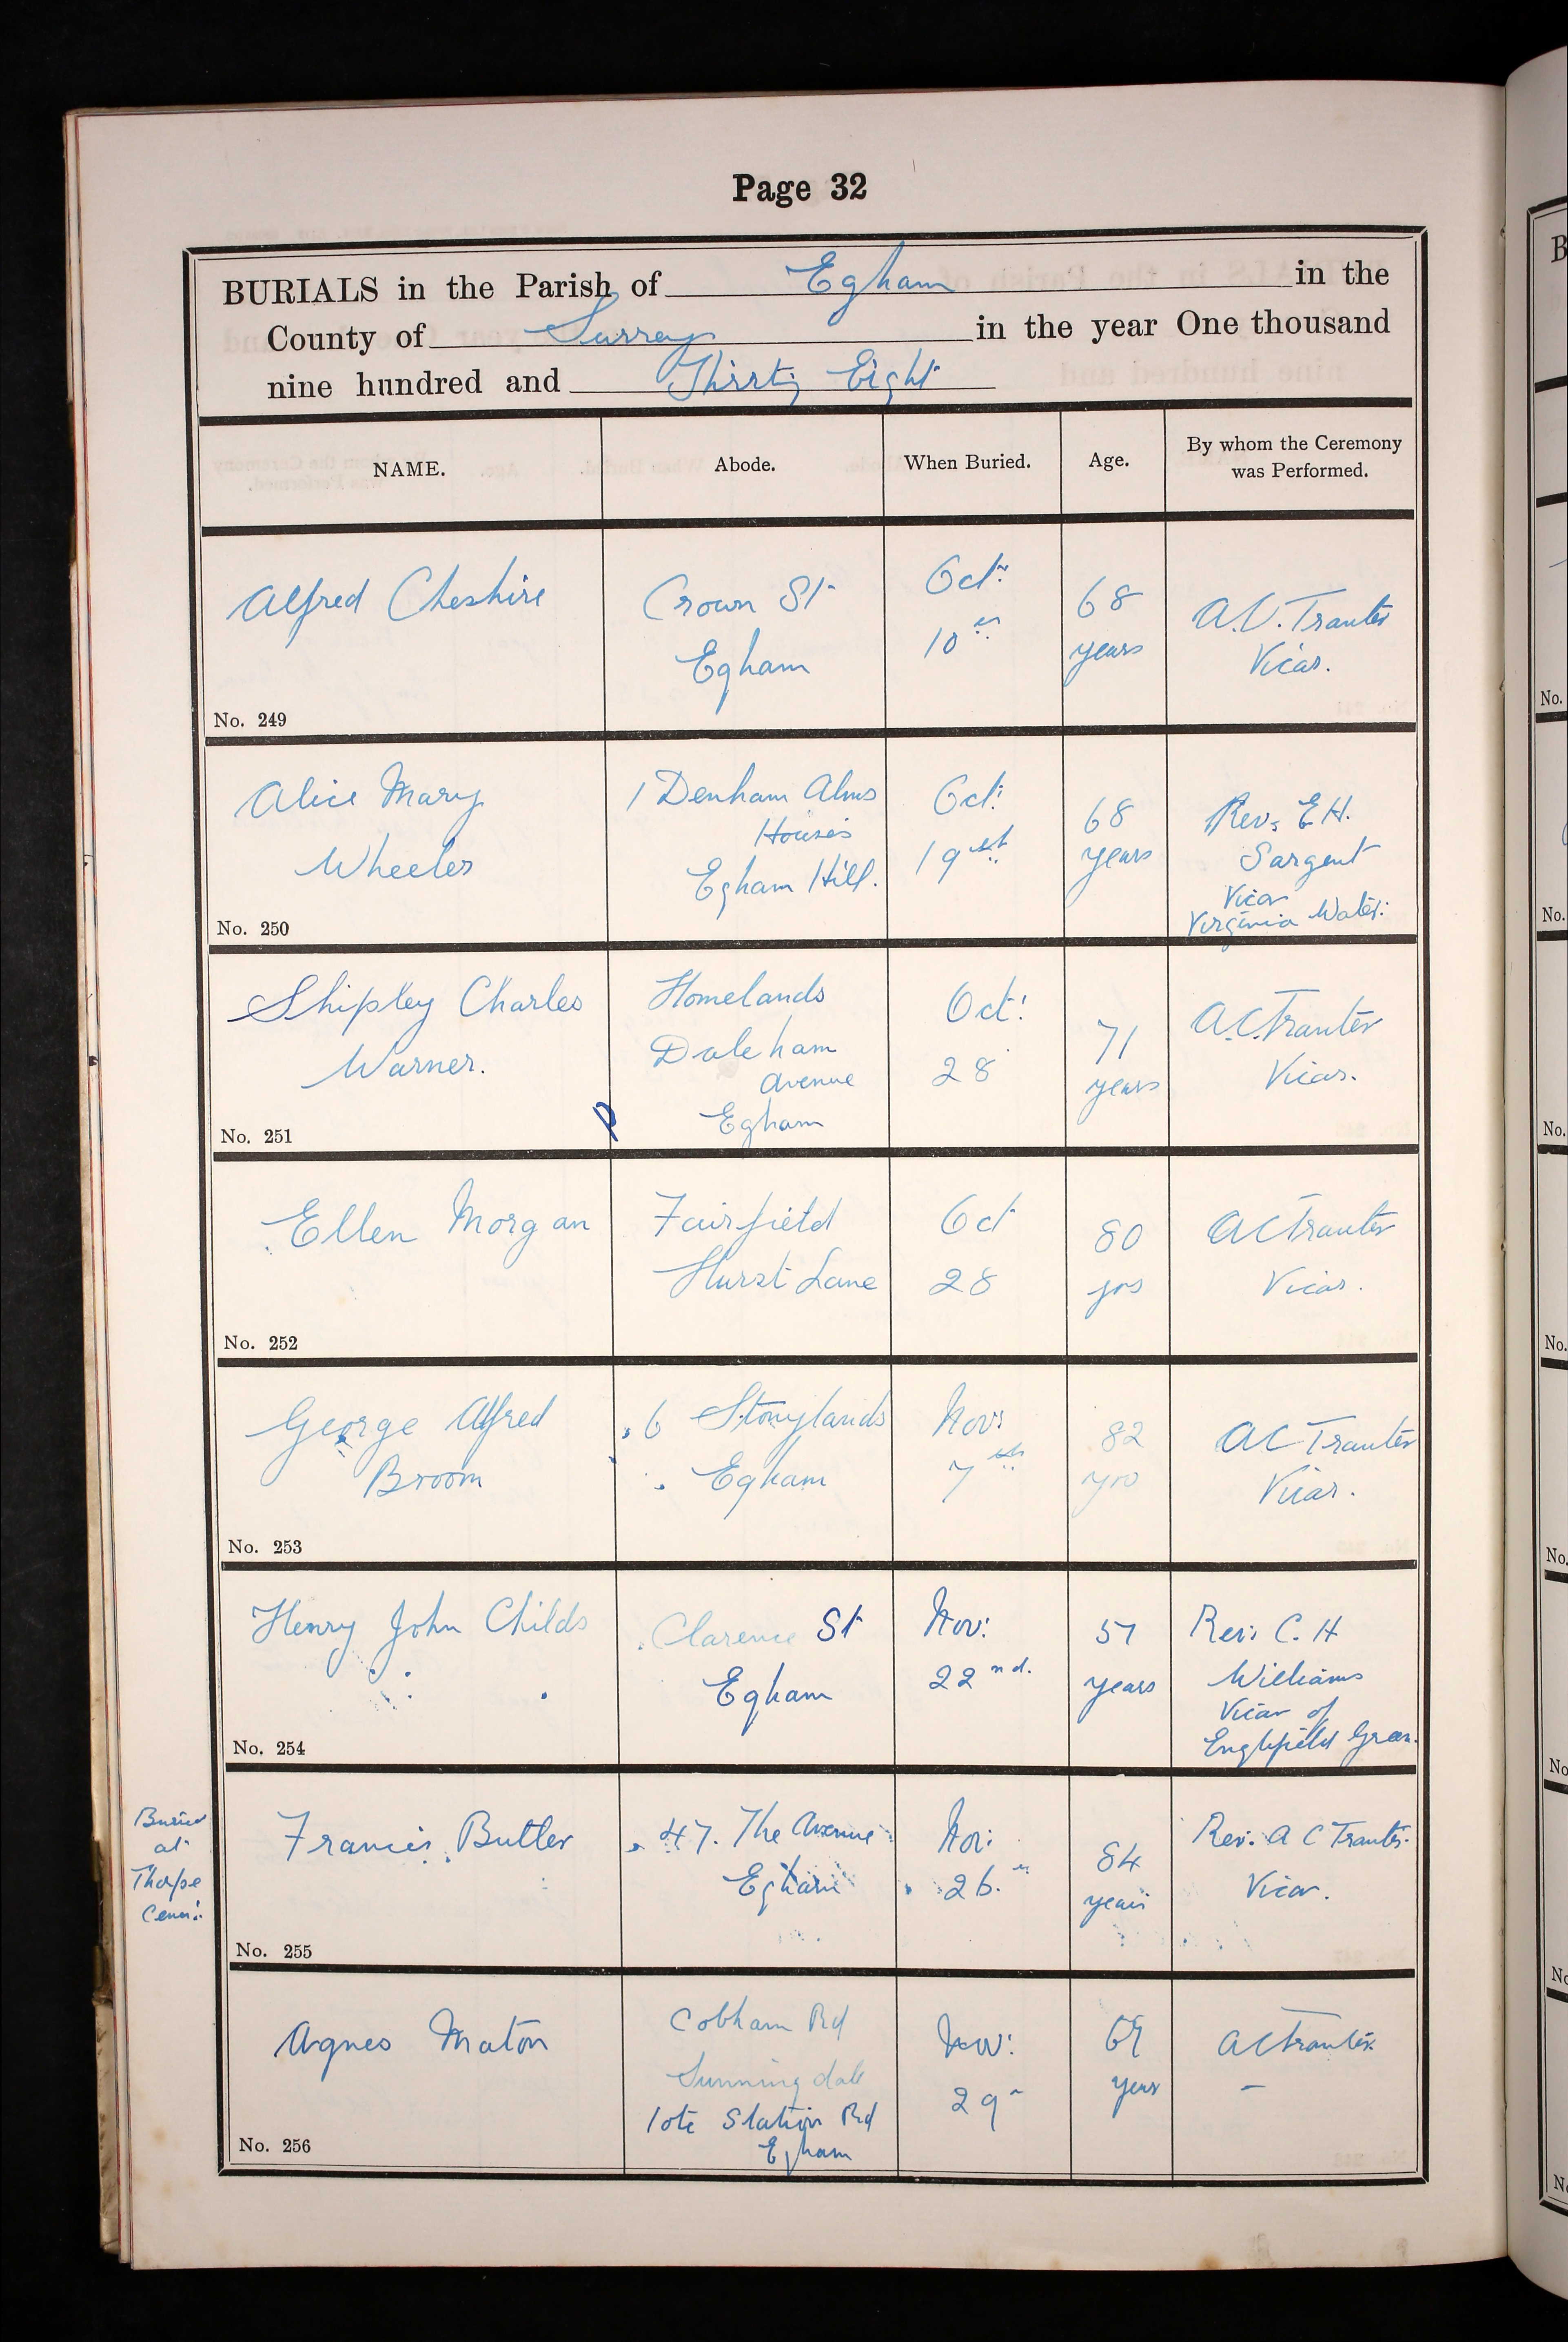 Page 32
BURIALS in the Parish of Egham in the
County of Surrey in the year One thousand
nine hundred and Thirty Eight
NAME. Abode. When Buried. Age. By whom the Ceremony was Performed.
Alfred Cheshire
Crown St
Egham
Oct:
10th
68
years
A.C. Tranter
Vicar.
No. 249
Alice Mary
Wheeler
1 Denham Alms
Houses
Egham Hill.
Oct:
19th
68
years
Rev. E H.
Sargent
Vicar
Virginia Water:
No. 250
Shipley Charles
Warner.
Homelands
Daleham
Avenue
Egham
Oct:
28
71
years
A.C. Tranter
Vicar.
No. 251
Ellen Morgan
Fairfield
Hurst Lane
Oct
28
80
yrs
A C Tranter
Vicar.
No. 252
George Alfred
Broom
6 Stonylands
Egham
Nov:
7th
82
yrs
A C Tranter
Vicar.
No. 253
Henry John Childs
Clarence St
Egham
Nov:
22nd.
57
years
Rev: C. H
Williams
Vicar of
Englefield Green.
No. 254
Buried
at
Thorpe
Cem:
Francis Butler
47. The Avenue
Egham
Nov:
26.
84
years
Rev: A C Tranter.
Vicar.
No. 255
Agnes Maton
Cobham Rd
Sunningdale
late Station Rd
Egham
Nov:
29
69
years
A C Tranter.
No. 256